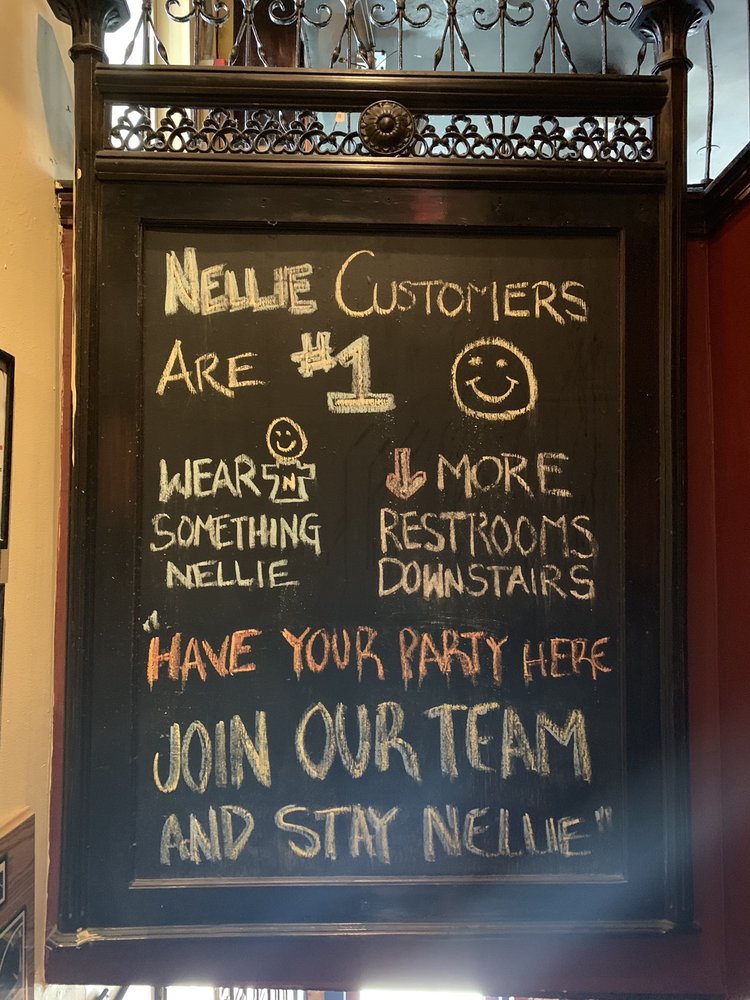 NELLIE CUSTOMERS
ARE #1
WEAR
N
SOMETHING
NELLIE
↓ MORE
RESTROOMS
DOWNSTAIRS
"HAVE YOUR PARTY HERE
JOIN OUR TEAM
AND STAY NELLIE"